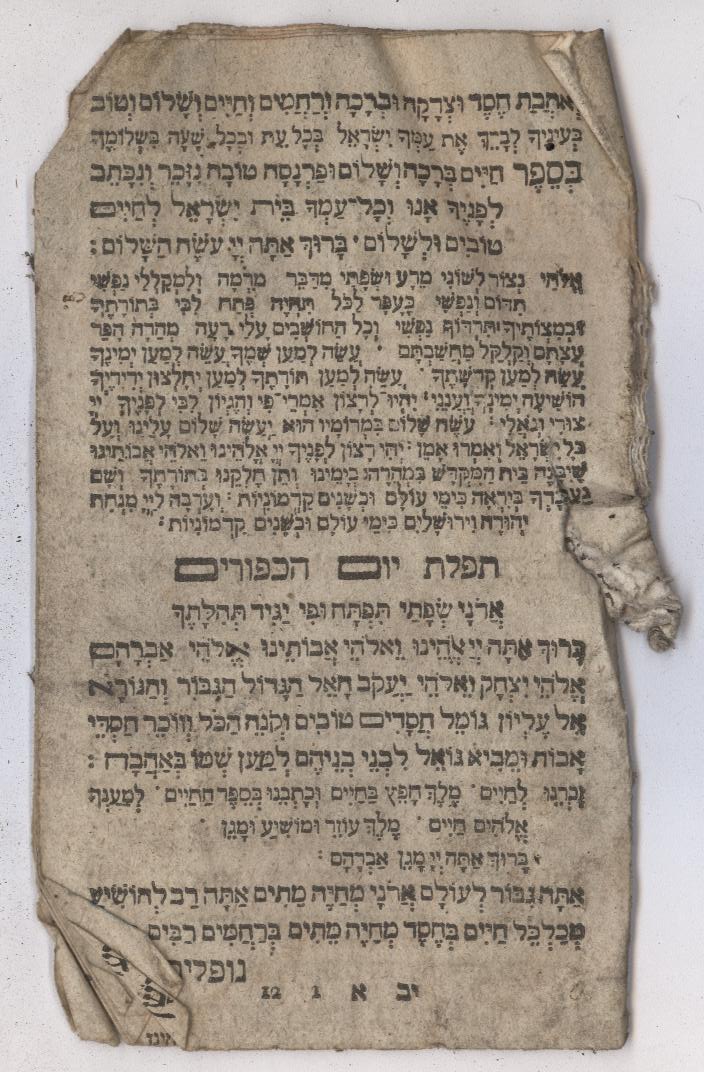 וְאַהֲבַת חֶסֶד וּצְדָקָה וּבְרָכָה וְרַחֲמִים וְחַיִּים וְשָׁלוֹם וְטוֹב
בְּעֵינֶיךָ לְבָרֵךְ אֶת עַמְּךָ יִשְׂרָאֵל בְּכָל עֵת וּבְכָל שָׁעָה בִּשְׁלוֹמֶךָ
בְּסֵפֶר חַיִּים בְּרָכָה וְשָׁלוֹם וּפַרְנָסָה טוֹבָה נִזָּכֵר וְנִכָּתֵב
לְפָנֶיךָ אָנוּ וְכָל־עַמְּךָ בֵּית יִשְׂרָאֵל לְחַיִּים
טוֹבִים וּלְשָׁלוֹם · בָּרוּךְ אַתָּה יְיָ עֹשֵׂה הַשָּׁלוֹם :
אֱלֹהַי נְצוֹר לְשׁוֹנִי מֵרָע וּשְׂפָתַי מִדַּבֵּר מִרְמָה וְלִמְקַלְלַי נַפְשִׁי
תִדּוֹם וְנַפְשִׁי כֶּעָפָר לַכֹּל תִּהְיֶה פְּתַח לִבִּי בְּתוֹרָתֶךָ
וּבְמִצְוֹתֶיךָ תִּרְדּוֹף נַפְשִׁי וְכָל הַחוֹשְׁבִים עָלַי רָעָה מְהֵרָה הָפֵר
עֲצָתָם וְקַלְקֵל מַחֲשַׁבְתָּם · עֲשֵׂה לְמַעַן שְׁמֶךָ עֲשֵׂה לְמַעַן יְמִינֶךָ
עֲשֵׂה לְמַעַן קְדֻשָּׁתֶךָ · עֲשֵׂה לְמַעַן תּוֹרָתֶךָ לְמַעַן יֵחָלְצוּן יְדִידֶיךָ
הוֹשִׁיעָה יְמִינְךָ וַעֲנֵנִי · יִהְיוּ לְרָצוֹן אִמְרֵי־פִי וְהֶגְיוֹן לִבִּי לְפָנֶיךָ יְיָ
צוּרִי וְגֹאֲלִי · עֹשֶׂה שָׁלוֹם בִּמְרוֹמָיו הוּא יַעֲשֶׂה שָׁלוֹם עָלֵינוּ וְעַל
כָּל יִשְׂרָאֵל וְאִמְרוּ אָמֵן : יְהִי רָצוֹן לְפָנֶיךָ יְיָ אֱלֹהֵינוּ וֵאלֹהֵי אֲבוֹתֵינוּ
שֶׁיִּבָּנֶה בֵּית הַמִּקְדָּשׁ בִּמְהֵרָה בְיָמֵינוּ וְתֵן חֶלְקֵנוּ בְּתוֹרָתֶךָ וְשָׁם
נַעֲבָדְךָ בְּיִרְאָה כִּימֵי עוֹלָם וּכְשָׁנִים קַדְמוֹנִיּוֹת : וְעָרְבָה לַיְיָ מִנְחַת
יְהוּדָה וִירוּשָׁלָיִם כִּימֵי עוֹלָם וּכְשָׁנִים קַדְמוֹנִיּוֹת :
תפלת יום הכפורים
אֲדֹנָי שְׂפָתַי תִּפְתָּח וּפִי יַגִּיד תְּהִלָּתֶךָ
בָּרוּךְ אַתָּה יְיָ אֱלֹהֵינוּ וֵאלֹהֵי אֲבוֹתֵינוּ אֱלֹהֵי אַבְרָהָם
אֱלֹהֵי יִצְחָק וֵאלֹהֵי יַעֲקֹב הָאֵל הַגָּדוֹל הַגִּבּוֹר וְהַנּוֹרָא
אֵל עֶלְיוֹן גּוֹמֵל חֲסָדִים טוֹבִים וְקֹנֵה הַכֹּל וְזוֹכֵר חַסְדֵי
אָבוֹת וּמֵבִיא גוֹאֵל לִבְנֵי בְנֵיהֶם לְמַעַן שְׁמוֹ בְּאַהֲבָה :
זָכְרֵנוּ לְחַיִּים · מֶלֶךְ חָפֵץ בַּחַיִּים וְכָתְבֵנוּ בְּסֵפֶר הַחַיִּים · לְמַעַנְךָ
אֱלֹהִים חַיִּים · מֶלֶךְ עוֹזֵר וּמוֹשִׁיעַ וּמָגֵן ·
בָּרוּךְ אַתָּה יְיָ מָגֵן אַבְרָהָם :
אַתָּה גִּבּוֹר לְעוֹלָם אֲדֹנָי מְחַיֵּה מֵתִים אַתָּה רַב לְהוֹשִׁיעַ
מְכַלְכֵּל חַיִּים בְּחֶסֶד מְחַיֵּה מֵתִים בְּרַחֲמִים רַבִּים
נופלים
יב א 1 12